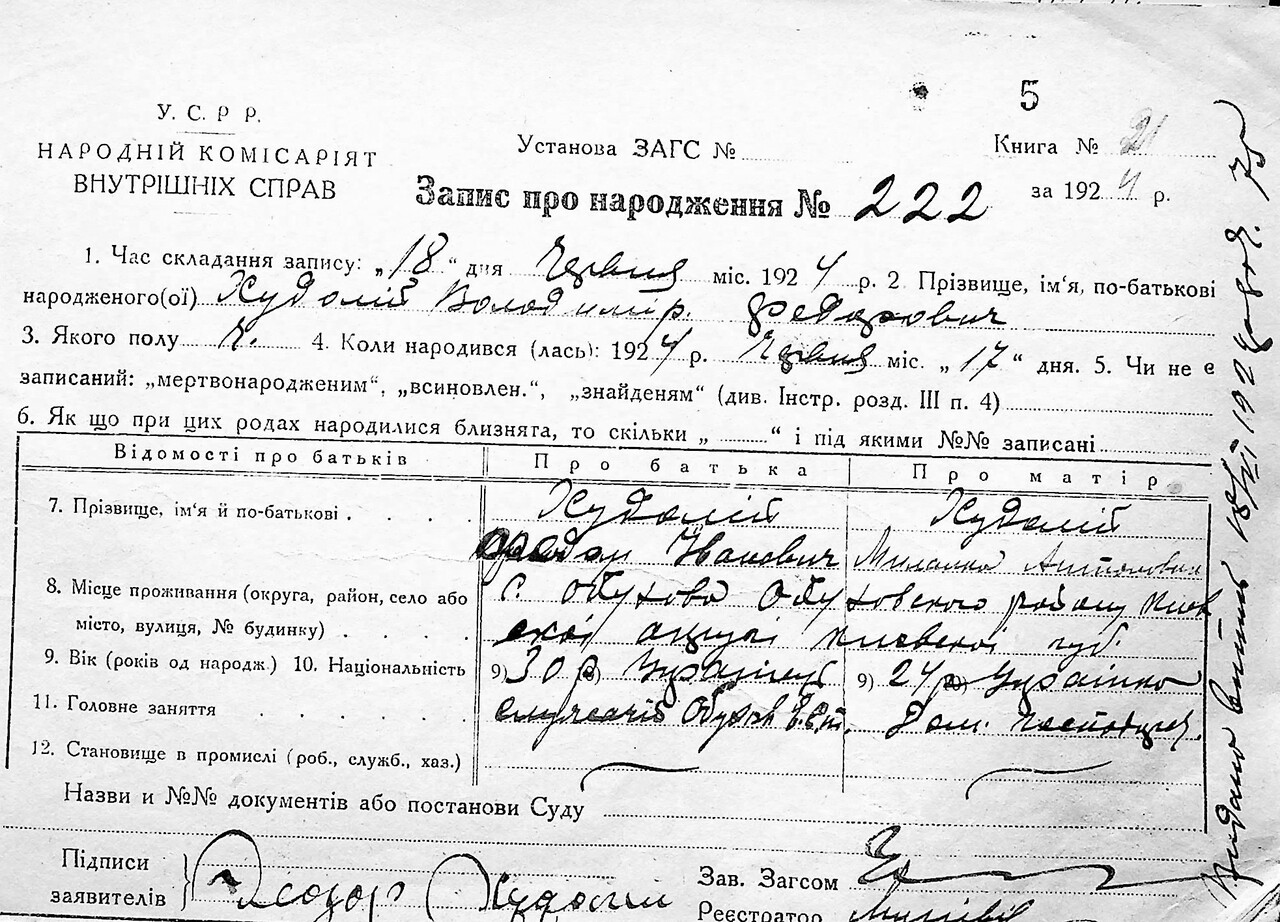 5
У. С. Р Р.
НАРОДНІЙ КОМІСАРІЯТ
ВНУТРІШНІХ СПРАВ
Установа ЗАГС №
Книга № 21
за 1924 р.
Запис про народження № 222
1. Час складання запису: „18“ дня Червня міс. 1924 р. 2 Прізвище, ім‘я, по-батькові
народженого(ої) Худолій Володимір. Федорович
3. Якого полу Ч. 4. Коли народився (лась): 1924 р. Червня міс. „17“ дня. 5. Чи не є
записаний: „мертвонародженим“, „всиновлен.“, „знайденям“ (див. Інстр. розд. III п. 4)
6. Як що при цих родах народилися близнята, то скільки „ “ і під якими №№ записані
Відомості про батьків Про батька Про матір
7. Прізвище, ім‘я й по-батькові Худолій Худолій
Іванович
8. Місце проживання (округа, район, село або с. Обухово Обуховского району
місто, вулиця, № будинку) київскої губ.
9. Вік (років од народж.) 10. Національність 9) 30 р 9) 24 Українка
11. Головне заняття Дом.
12. Становище в промислі (роб., служб., хаз.)
Назви и №№ документів або постанови Суду
Підписи
заявителів Теодор Худолій
Зав. Загсом
Реєстратор
Видано витяг 18/VI 1924